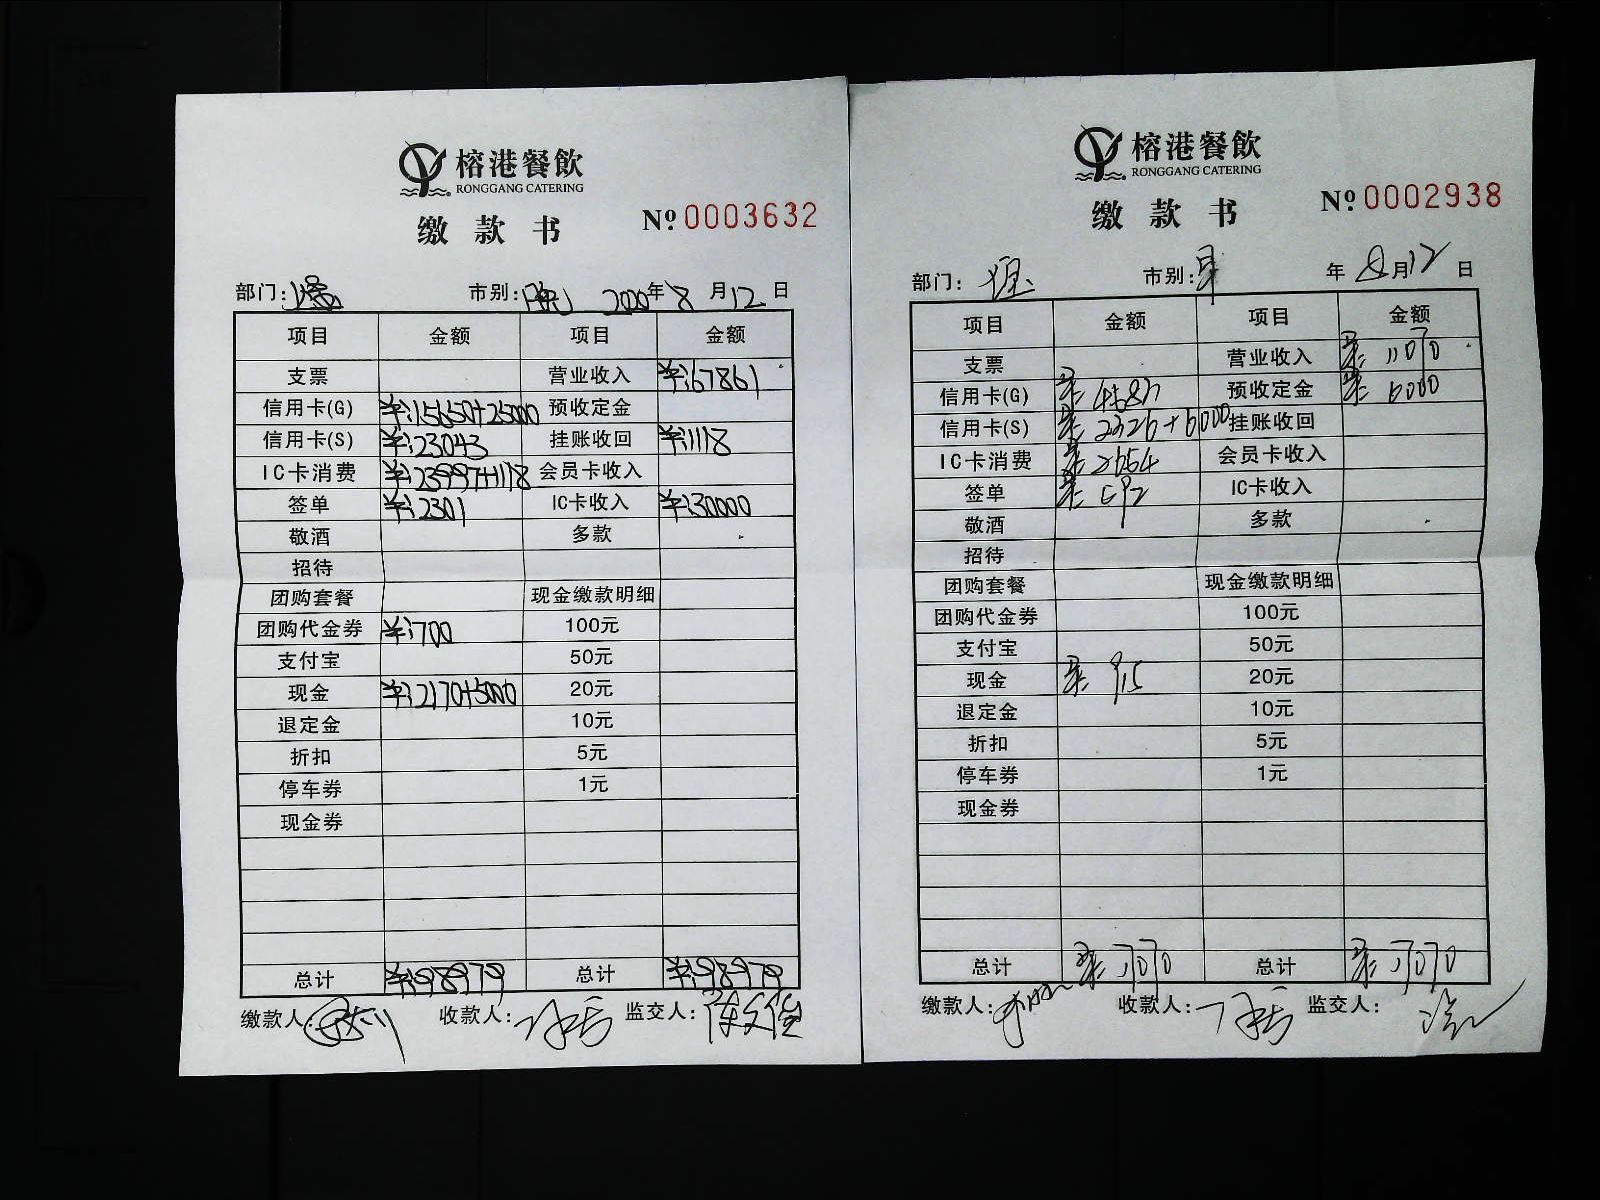 榕港餐飲
RONGGANG CATERING
缴款书 № 0003632
部门: 市别:晚 2020年8月12日
项目 金额 项目 金额
支票 营业收入 ¥:67861
信用卡(G) ¥:15650+25000 预收定金
信用卡(S) ¥:23043 挂账收回 ¥:1118
IC卡消费 ¥:23997+1118 会员卡收入
签单 ¥:2301 IC卡收入 ¥:30000
敬酒 多款
招待
团购套餐 现金缴款明细
团购代金券 ¥:700 100元
支付宝 50元
现金 ¥:2170+5000 20元
退定金 10元
折扣 5元
停车券 1元
现金券
总计 ¥:98979 总计 ¥:98979
缴款人: 收款人: 监交人:
榕港餐飲
RONGGANG CATERING
缴款书 № 0002938
部门: 市别: 年8月12日
项目 金额 项目 金额
支票 营业收入 11070
信用卡(G) 4583 预收定金 6000
信用卡(S) 2326+6000 挂账收回
IC卡消费 2664 会员卡收入
签单 582 IC卡收入
敬酒 多款
招待
团购套餐 现金缴款明细
团购代金券 100元
支付宝 50元
现金 915 20元
退定金 10元
折扣 5元
停车券 1元
现金券
总计 17070 总计 17070
缴款人: 收款人: 监交人: